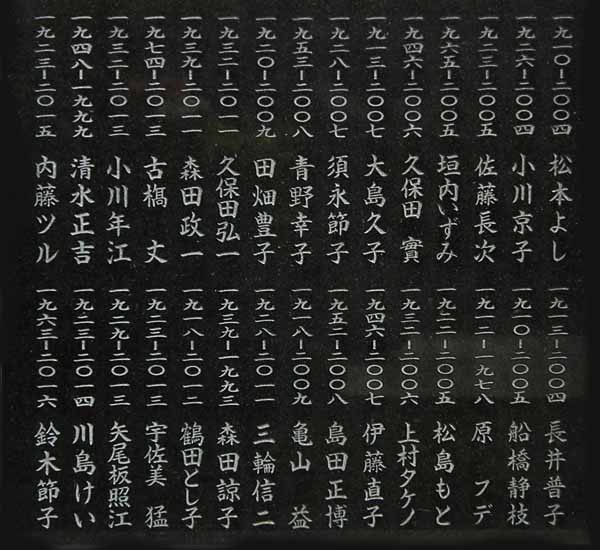 一九一〇-二〇〇四 松本よし
一九二六-二〇〇四 小川京子
一九二三-二〇〇五 佐藤長次
一九六五-二〇〇五 垣内いずみ
一九四六-二〇〇六 久保田 實
一九一三-二〇〇七 大島久子
一九二八-二〇〇七 須永節子
一九五三-二〇〇八 青野幸子
一九二〇-二〇〇九 田畑豊子
一九三二-二〇一一 久保田弘一
一九三九-二〇一一 森田政一
一九七四-二〇一三 古槗 丈
一九三二-二〇一三 小川年江
一九四八-一九九九 清水正吉
一九二三-二〇一五 内藤ツル
一九一三-二〇〇四 長井普子
一九一〇-二〇〇五 船橋静枝
一九一二-一九七八 原 フデ
一九二二-二〇〇五 松島もと
一九三二-二〇〇六 上村タケノ
一九四六-二〇〇七 伊藤直子
一九五二-二〇〇八 島田正博
一九一八-二〇〇九 亀山 益
一九二八-二〇一一 三輪信二
一九三九-一九九三 森田諒子
一九一八-二〇一二 鶴田とし子
一九二三-二〇一三 宇佐美 猛
一九二九-二〇一三 矢尾板照江
一九二三-二〇一四 川島けい
一九六三-二〇一六 鈴木節子